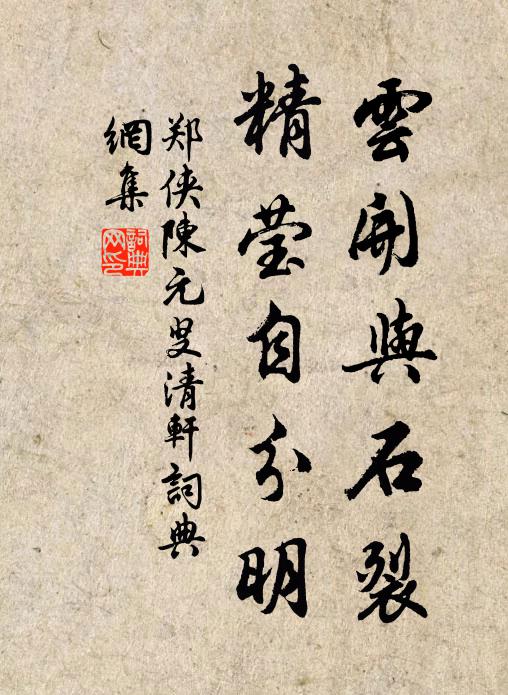 雲開與石裂
精莹自分明
郑侠陳元叟清軒詞典
網集
詞典
网印